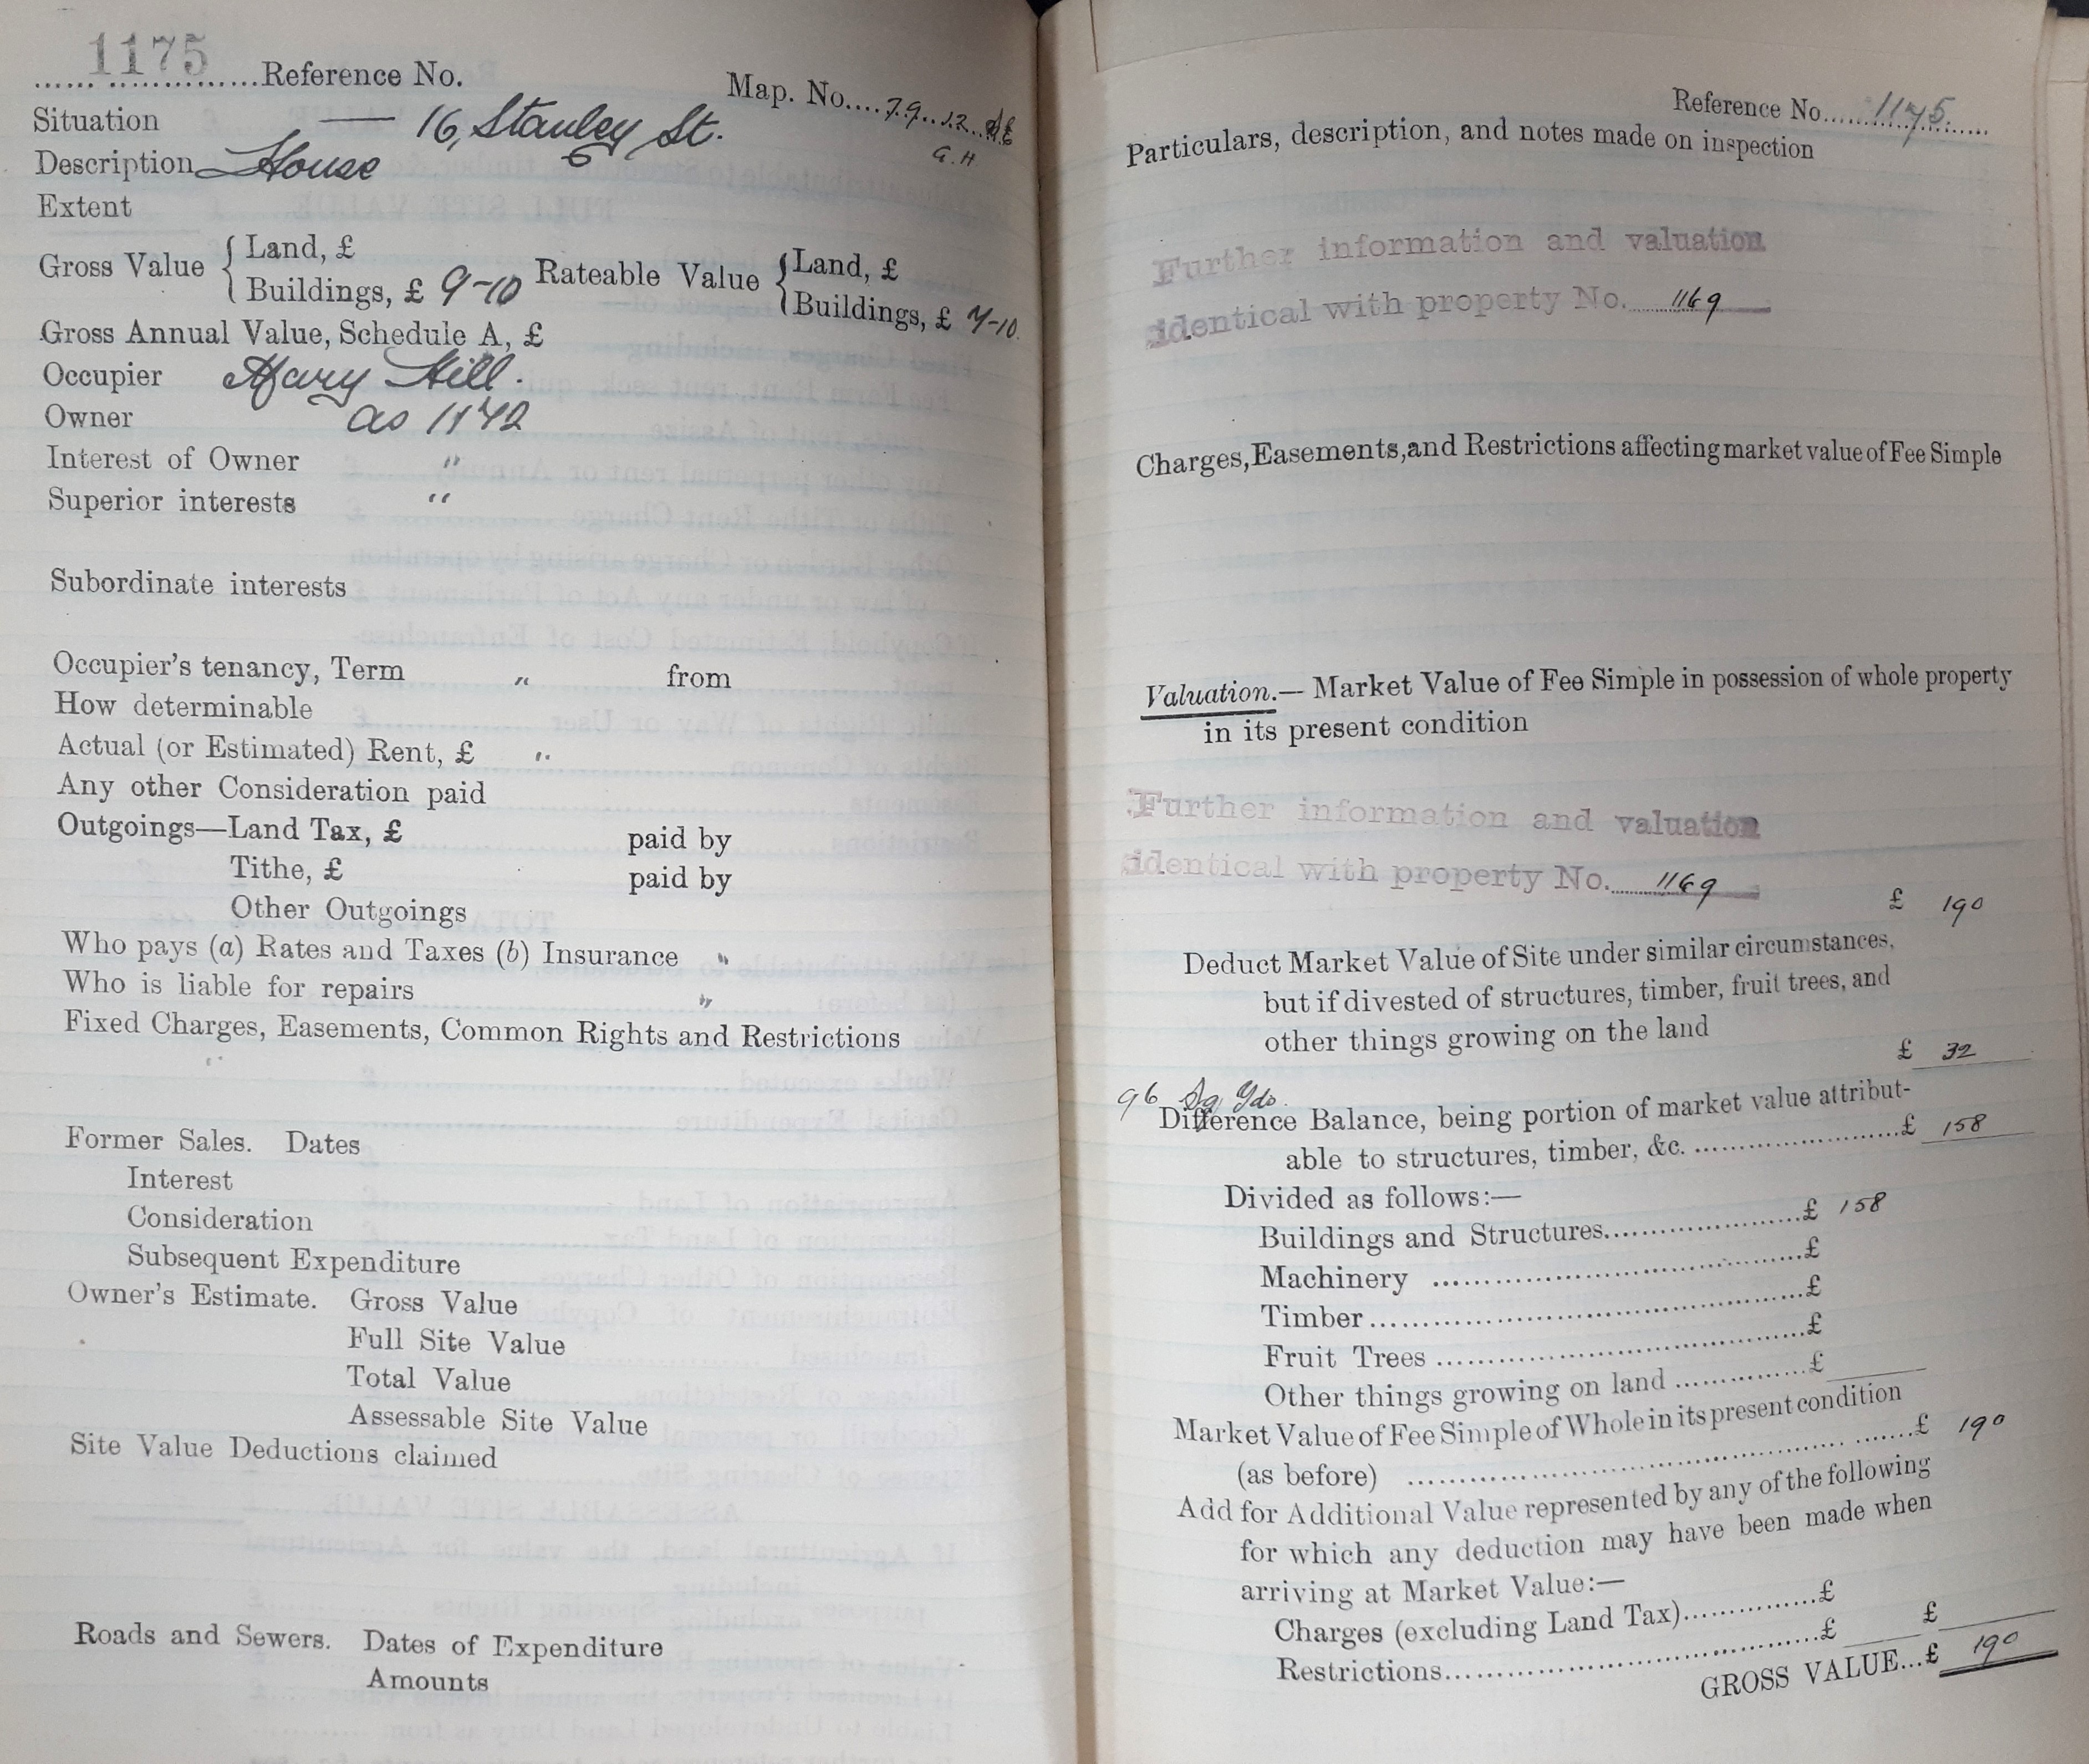 1175
Reference No.
Map. No....79..12..
G. H
Situation — 16, Stanley St.
Description House
Extent
Gross Value { Land, £
Buildings, £ 9-10
Rateable Value { Land, £
Buildings, £ 7-10.
Gross Annual Value, Schedule A, £
Occupier Mary Hill.
Owner as 1172
Interest of Owner "
Superior interests "
Subordinate interests
Occupier's tenancy, Term " from
How determinable
Actual (or Estimated) Rent, £ "
Any other Consideration paid
Outgoings—Land Tax, £ paid by
Tithe, £ paid by
Other Outgoings
Who pays (a) Rates and Taxes (b) Insurance "
Who is liable for repairs "
Fixed Charges, Easements, Common Rights and Restrictions
Former Sales. Dates
Interest
Consideration
Subsequent Expenditure
Owner's Estimate. Gross Value
Full Site Value
Total Value
Assessable Site Value
Site Value Deductions claimed
Roads and Sewers. Dates of Expenditure
Amounts
Reference No. 1175.
Particulars, description, and notes made on inspection
Further information and valuation
identical with property No. 1169
Charges, Easements, and Restrictions affecting market value of Fee Simple
Valuation.— Market Value of Fee Simple in possession of whole property
in its present condition
Further information and valuation
identical with property No. 1169
£ 190
Deduct Market Value of Site under similar circumstances,
but if divested of structures, timber, fruit trees, and
other things growing on the land
£ 32
96 Sq Yds.
Difference Balance, being portion of market value attribut-
able to structures, timber, &c. £ 158
Divided as follows:—
Buildings and Structures £ 158
Machinery £
Timber £
Fruit Trees £
Other things growing on land £
Market Value of Fee Simple of Whole in its present condition
(as before) £ 190
Add for Additional Value represented by any of the following
for which any deduction may have been made when
arriving at Market Value:—
Charges (excluding Land Tax) £
Restrictions £ £
GROSS VALUE...£ 190